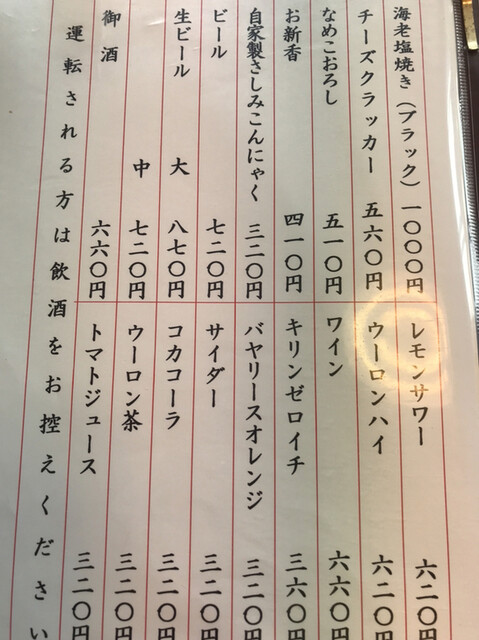 海老塩焼き(ブラック) 一〇〇〇円
チーズクラッカー 五六〇円
なめこおろし 五一〇円
お新香 四一〇円
自家製さしみこんにゃく 三二〇円
ビール 七二〇円
生ビール 大 八七〇円
中 七二〇円
御酒 六六〇円
レモンサワー 六二〇円
ウーロンハイ 六二〇円
ワイン 六六〇円
キリンゼロイチ 三六〇円
バヤリースオレンジ 三二〇円
サイダー 三二〇円
コカコーラ 三二〇円
ウーロン茶 三二〇円
トマトジュース 三二〇円
運転される方は飲酒をお控えください